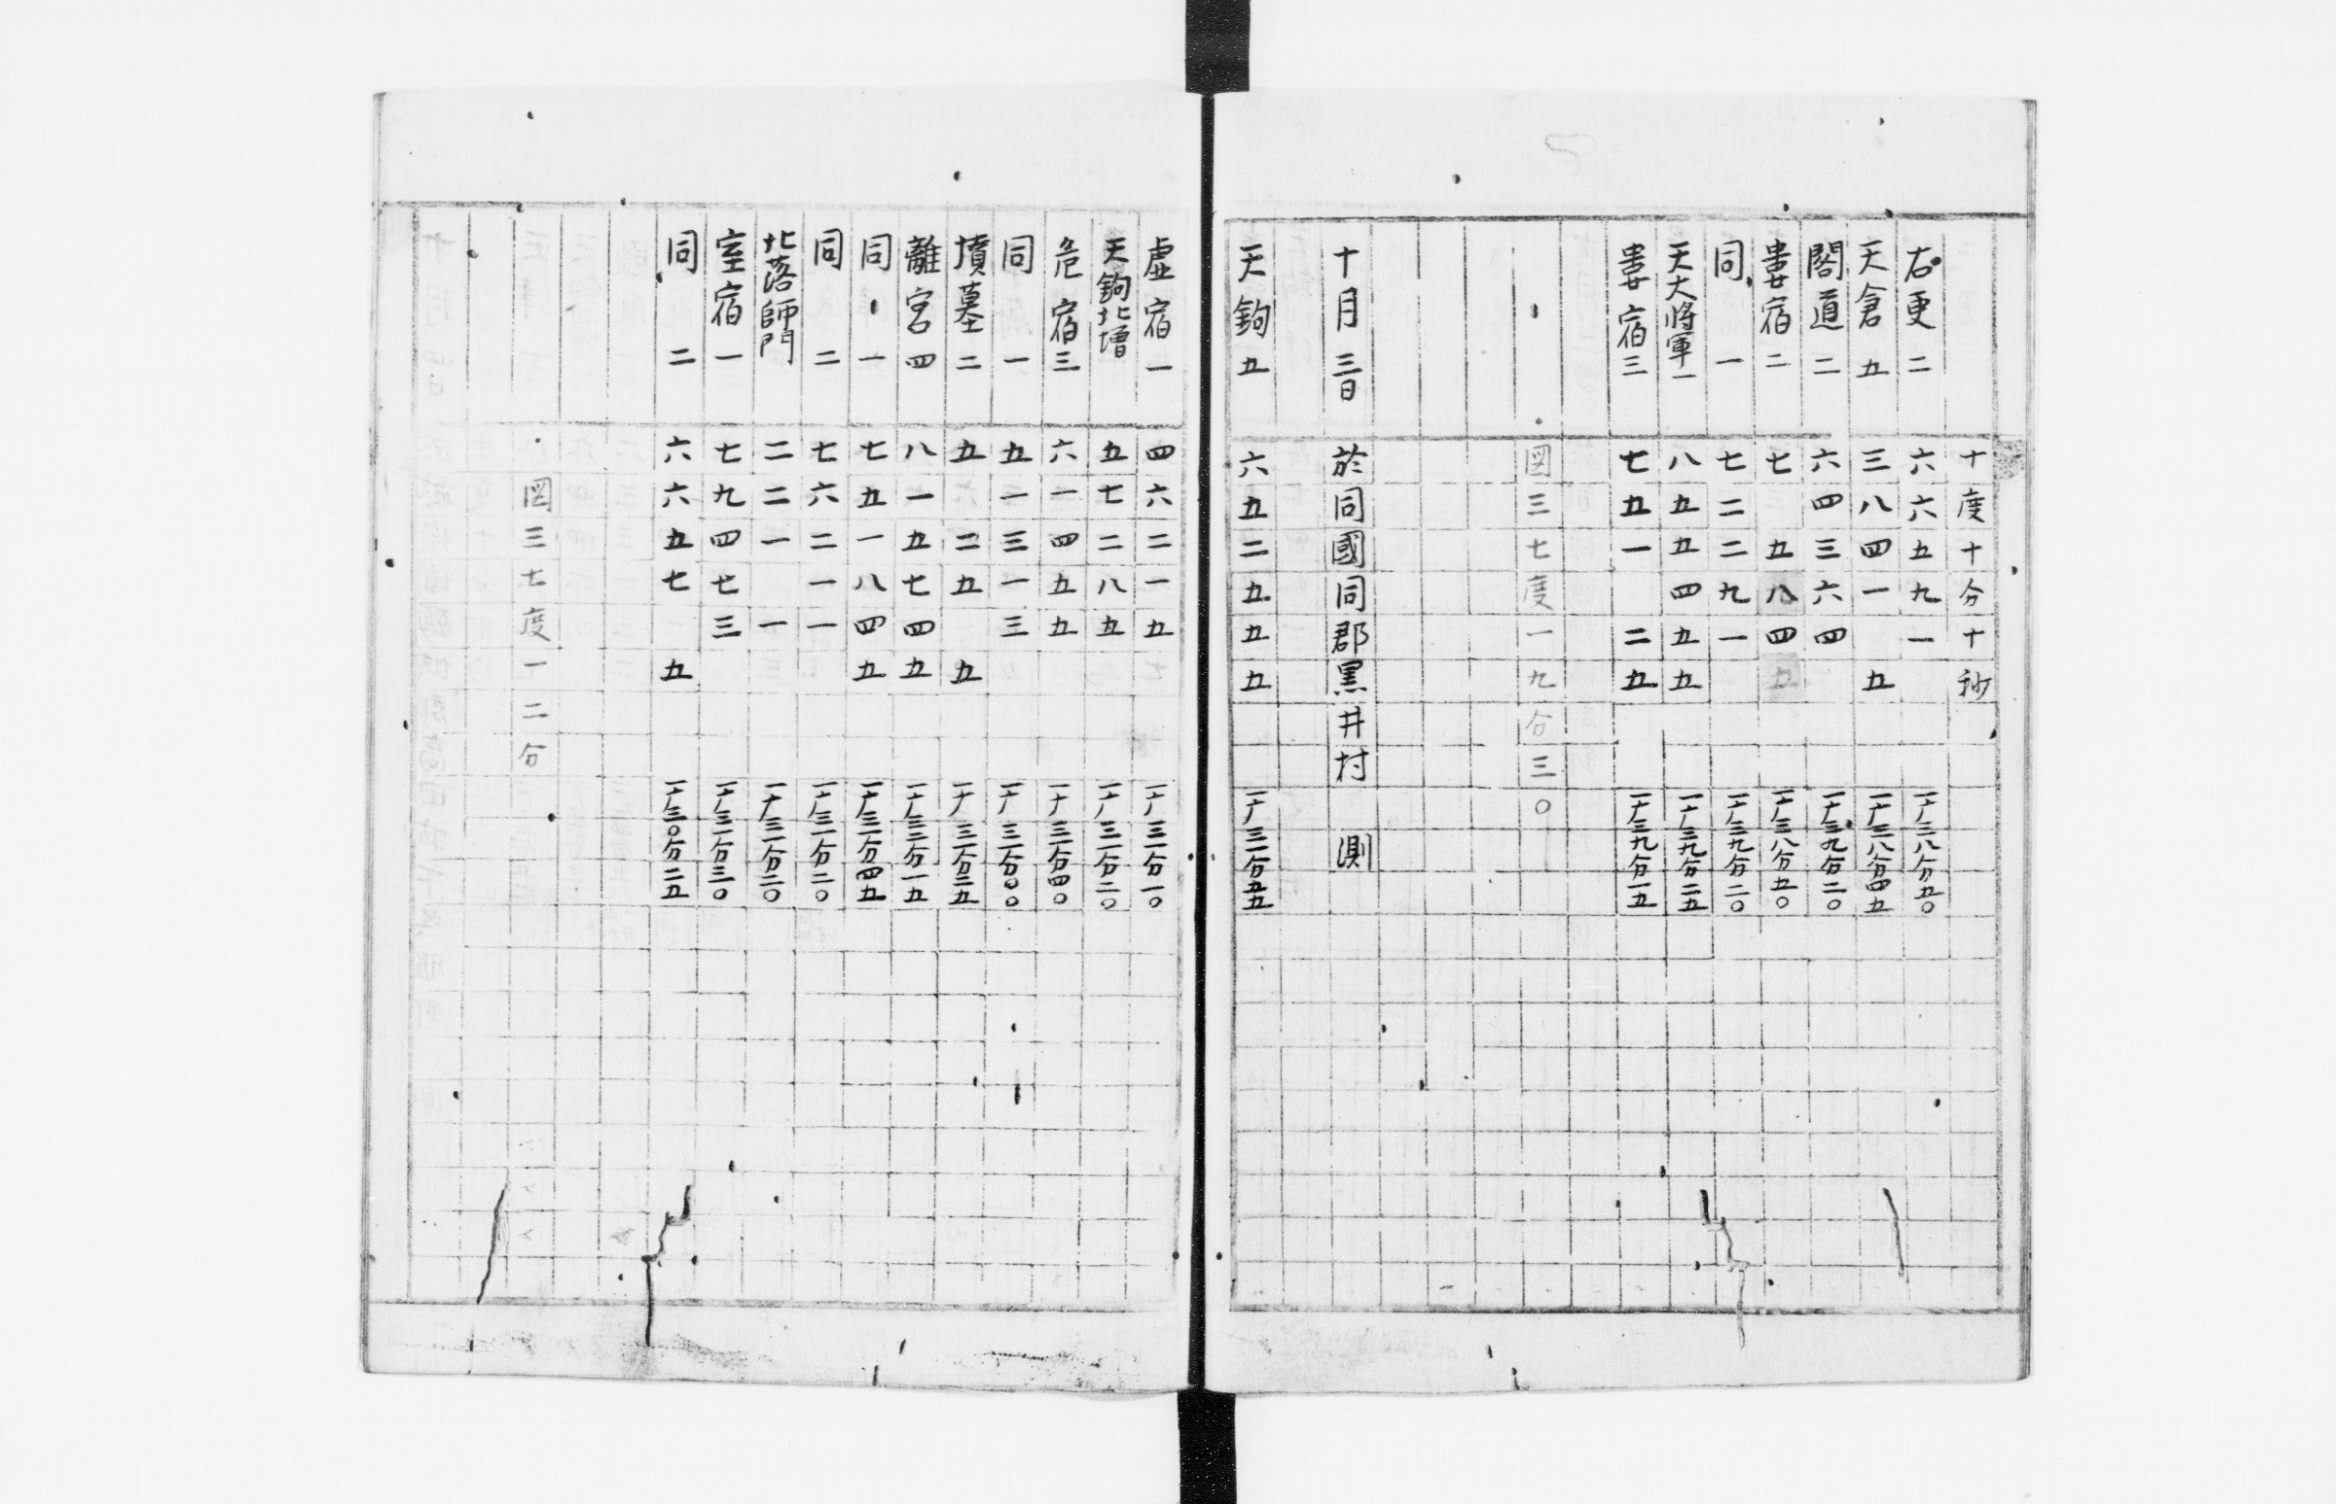 十度十分十秒
右更二 六六五九一 一十八三八分五〇
天倉五 三八四一 五 一十八三八分四五
閣道二 六四三六四 一十八三九分二〇
婁宿二 七 五八四五 一十八三八分五〇
同一 七二二九一 一十八三九分二〇
天大將軍一 八五五四五五 一十八三九分二五
婁宿三 七五一 二五 一十八三九分一五
図三七度一九分三〇
十月三日 於同國同郡黒井村 測
天鉤五 六五二五五五 三一分五五
虚宿一 四六二一五 三一分一〇
天鉤北增 五七二八五 三一分二〇
危宿三 六一四五五 三一分四〇
同一 五一三一三 三一分〇〇
墳墓二 五 二五 五
離宮四 八一五七四五 三一分一五
同一 七五一八四五 三一分四五
同二 七六二一一 三一分二〇
北落師門 二二一 一
室宿一 七九四七三 三一分三〇
同二 六六五七 五 三〇分二五
図三七度一二分